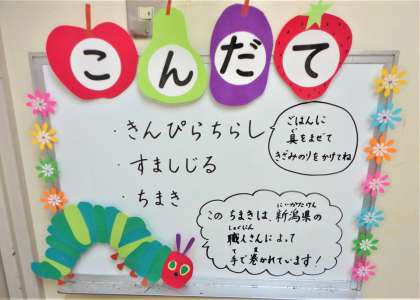 こんだて
・きんぴらちらし
ごはんに
具をまぜて
きざみのりをかけてね
・すましじる
・ちまき
この ちまきは、新潟県の
職人さんによって
手で巻かれています！